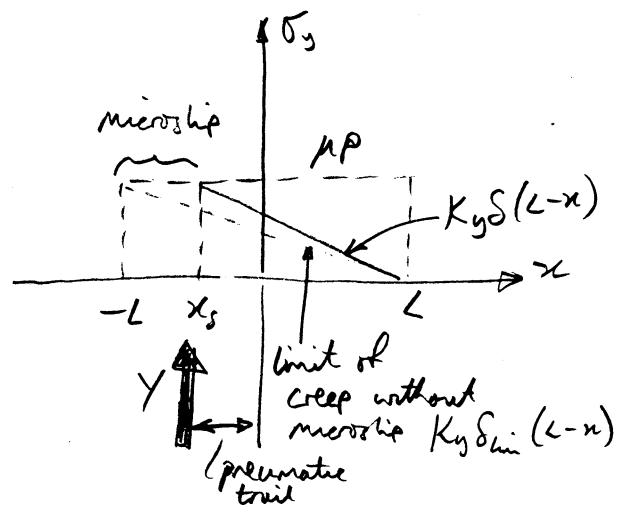 σy
microslip
μp
Kyδ(L-x)
x
-L
xs
L
Y
limit of
creep without
microslip Kyδlim(L-x)
pneumatic
trail